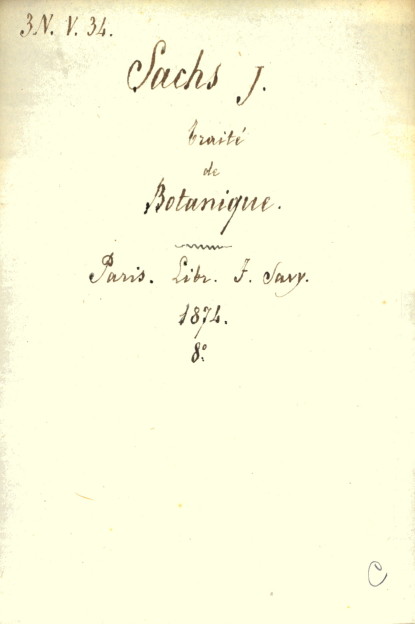 3N. V. 34.
Sachs J.
traité
de
Botanique.
Paris. Libr. F. Savy.
1874.
8º
C